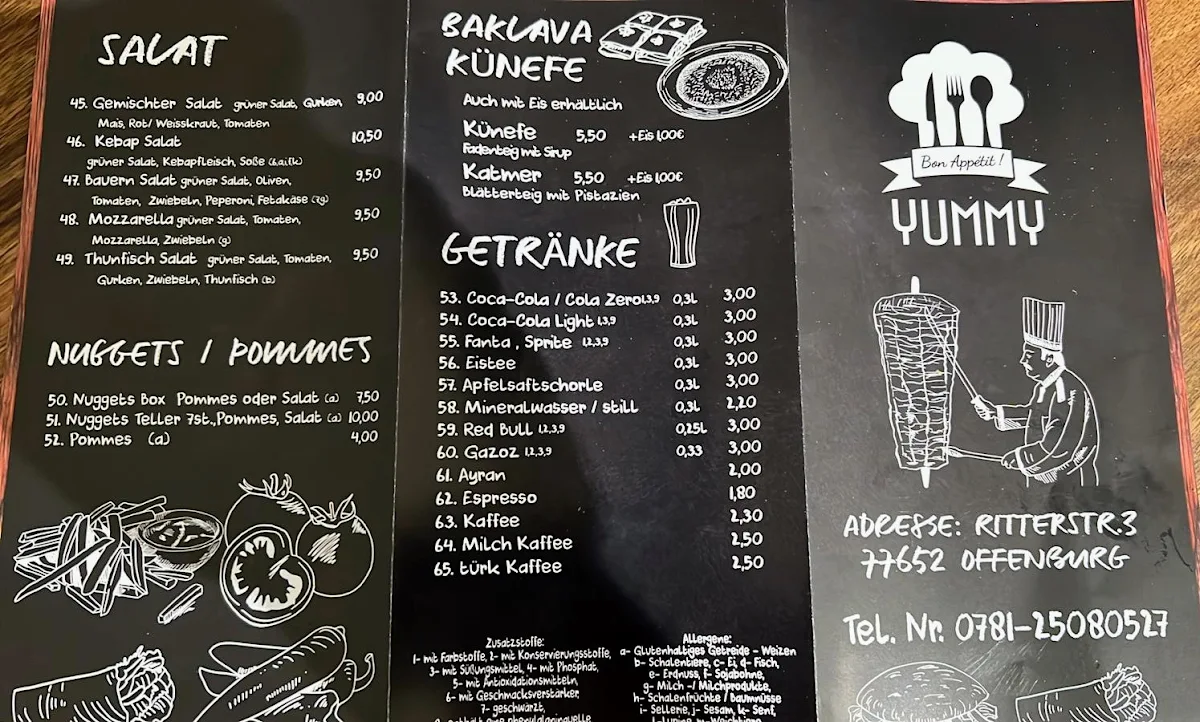 SALAT
45. Gemischter Salat grüner Salat, Gurken, 9,00
Mais, Rot/ Weisskraut, Tomaten
46. Kebap Salat 10,50
grüner Salat, Kebapfleisch, Soße
47. Bauern Salat grüner Salat, Oliven, 9,50
Tomaten, Zwiebeln, Peperoni, Fetakäse
48. Mozzarella grüner Salat, Tomaten, 9,50
Mozzarella, Zwiebeln (g)
49. Thunfisch Salat grüner Salat, Tomaten, 9,50
Gurken, Zwiebeln, Thunfisch (b)
NUGGETS / POMMES
50. Nuggets Box Pommes oder Salat (a) 7,50
51. Nuggets Teller 7st.,Pommes, Salat (a) 10,00
52. Pommes (a) 4,00
BAKLAVA
KÜNEFE
Auch mit Eis erhältlich
Künefe 5,50 +Eis 1,00€
Fadenteig mit Sirup
Katmer 5,50 +Eis 1,00€
Blätterteig mit Pistazien
GETRÄNKE
53. Coca-Cola / Cola Zero1,3,9 0,3L 3,00
54. Coca-Cola Light 1,3,9 0,3L 3,00
55. Fanta , Sprite 1,2,3,9 0,3L 3,00
56. Eistee 0,3L 3,00
57. Apfelsaftschorle 0,3L 3,00
58. Mineralwasser / still 0,3L 2,20
59. Red Bull 1,2,3,9 0,25L 3,00
60. Gazoz 1,2,3,9 0,33 3,00
61. Ayran 2,00
62. Espresso 1,80
63. Kaffee 2,30
64. Milch Kaffee 2,50
65. türk Kaffee 2,50
Zusatzstoffe:
1- mit Farbstoffe, 2- mit Konservierungsstoffe,
3- mit Süßungsmittel, 4- mit Phosphat,
5- mit Antioxidationsmitteln,
6- mit Geschmacksverstärker,
7- geschwärzt,
Allergene:
a- Glutenhaltiges Getreide - Weizen
b- Schalentiere, c- Ei, d- Fisch,
e- Erdnuss, f- Sojabohne,
g- Milch -/ Milchprodukte,
h- Schalenfrüchte / Baumnüsse
i- Sellerie, j- Sesam, k- Senf,
Bon Appétit !
YUMMY
ADRESSE: RITTERSTR.3
77652 OFFENBURG
Tel. Nr. 0781-25080527